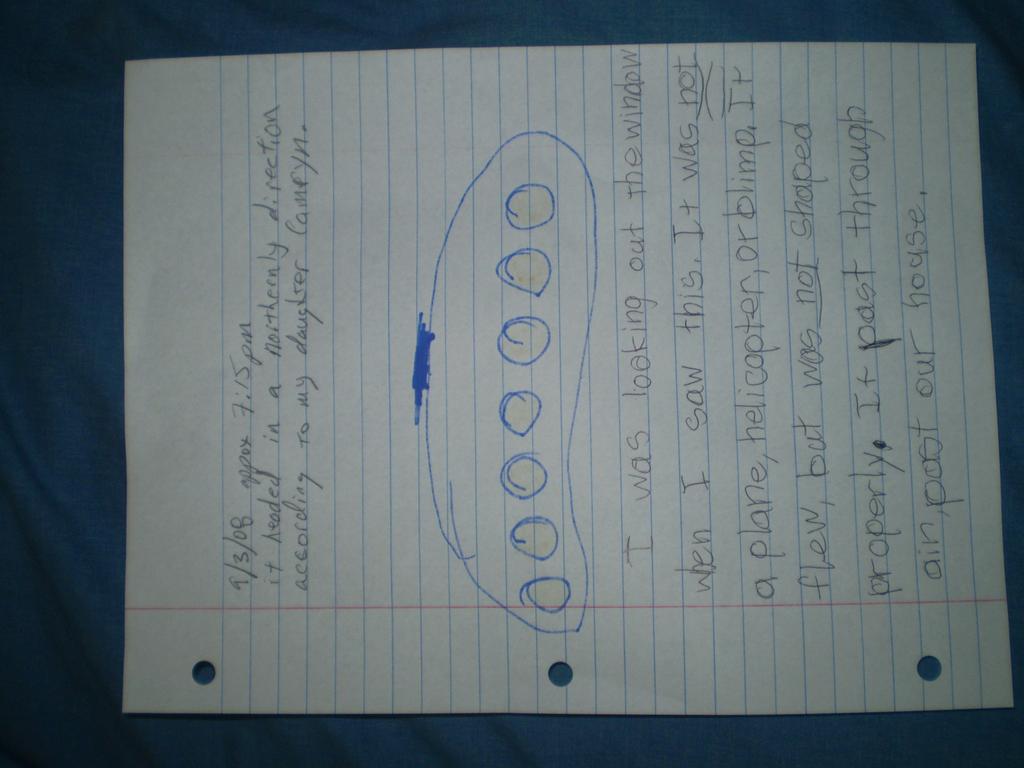 9/3/08 appox 7:15pm
it headed in a Northernly direction
according to my daughter Camryn.
I was looking out the window
when I saw this. It was not
a plane, helicopter, or blimp. It
flew, but was not shaped
properly. It past through
air, past our house.